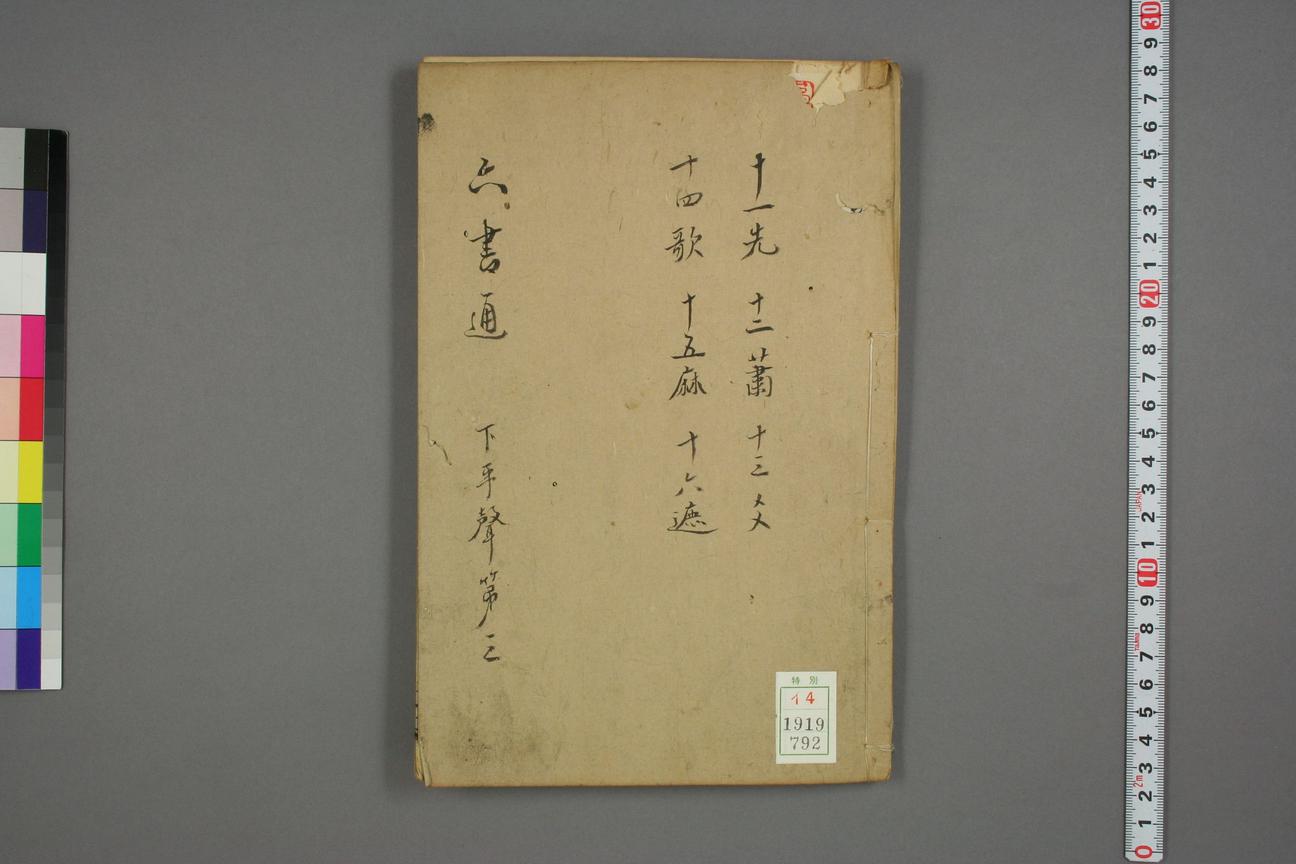 十一先 十二蕭 十三爻
十四歌 十五麻 十六遮
六書通 下平聲第三
特別
イ4
1919
792
30
9
8
7
6
5
4
3
2
1
20
9
8
7
6
5
4
3
JAPAN
2
1
10
9
8
7
TAJIMA
6
5
4
3
2m
2
1
0